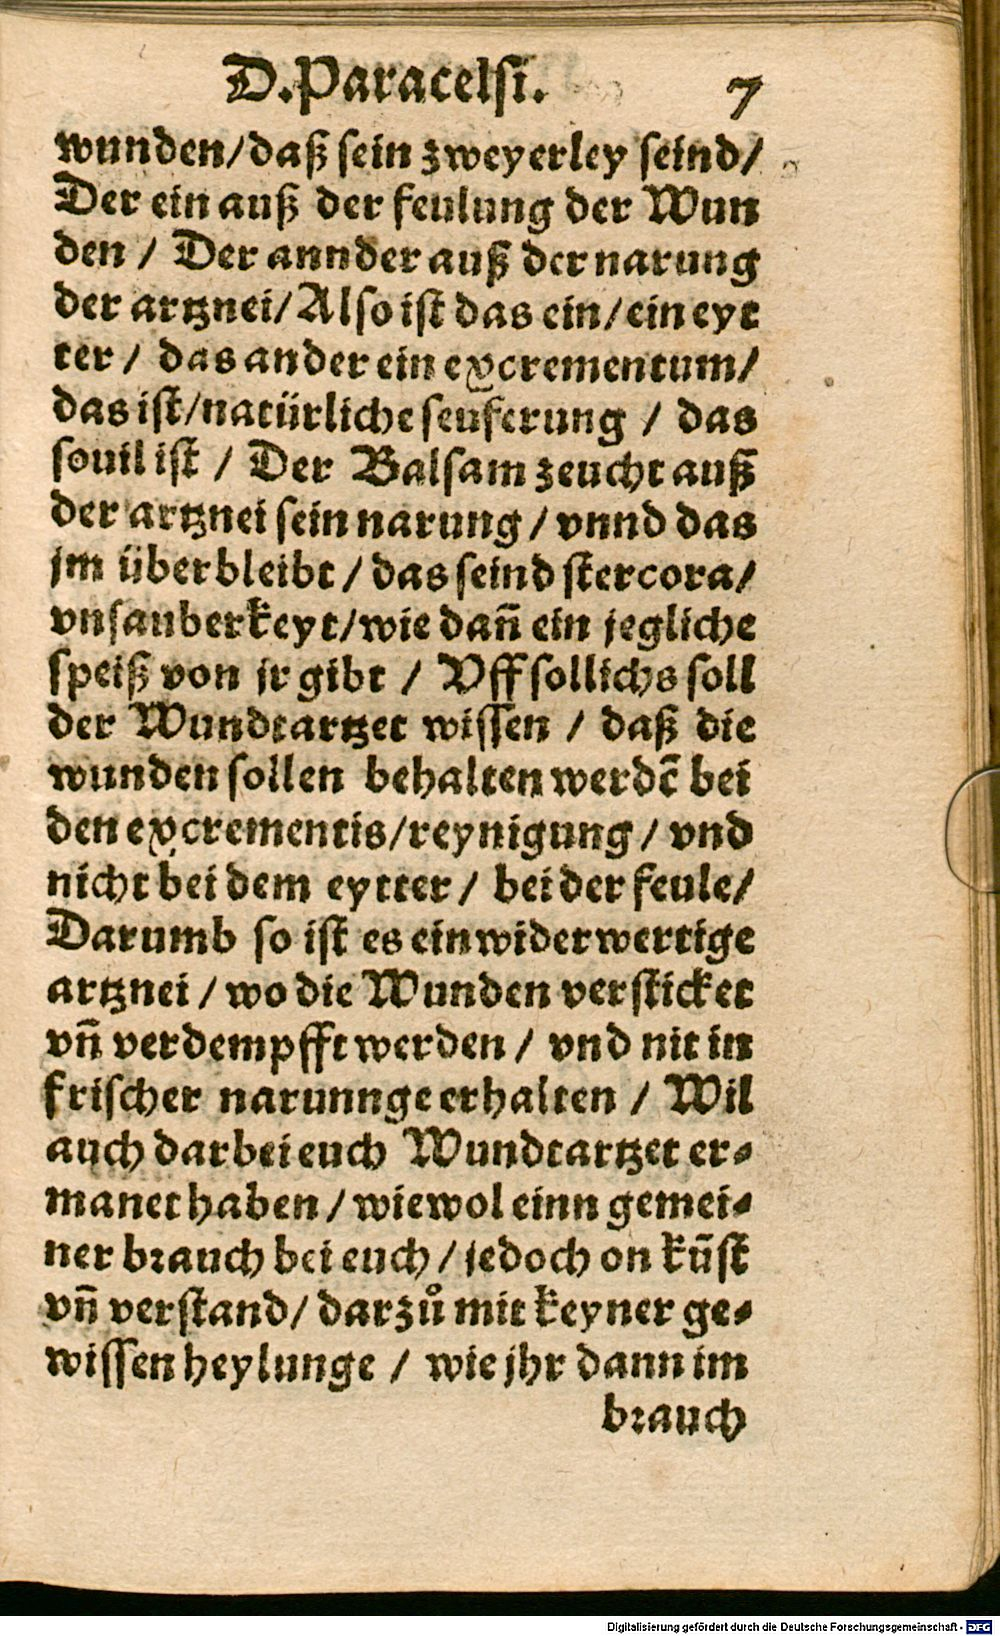 D. Paracelsi. 7
wunden/daß sein zweyerley seind/
Der ein auß der feulung der Wun
den / Der annder auß der narung
der artznei/Also ist das ein/ein eyt
ter / das ander ein excrementum/
das ist/natürliche seuferung / das
souil ist / Der Balsam zeucht auß
der artznei sein narung / vnnd das
jm überbleibt / das seind stercora/
vnsauberkeyt/wie dañ ein jegliche
speiß von jr gibt / Vff sollichs soll
der Wundtartzet wissen / daß die
wunden sollen behalten werdẽ bei
den excrementis/reynigung / vnd
nicht bei dem eytter / bei der feule/
Darumb so ist es ein widerwertige
artznei / wo die Wunden versticket
vñ verdempfft werden / vnd nit in
frischer narunnge erhalten / Wil
auch darbei euch Wundtartzet er⸗
manet haben / wiewol einn gemei⸗
ner brauch bei euch / jedoch on kũst
vñ verstand/ darzů mit keyner ge⸗
wissen heylunge / wie jhr dann im
brauch
Digitalisierung gefördert durch die Deutsche Forschungsgemeinschaft - DFG